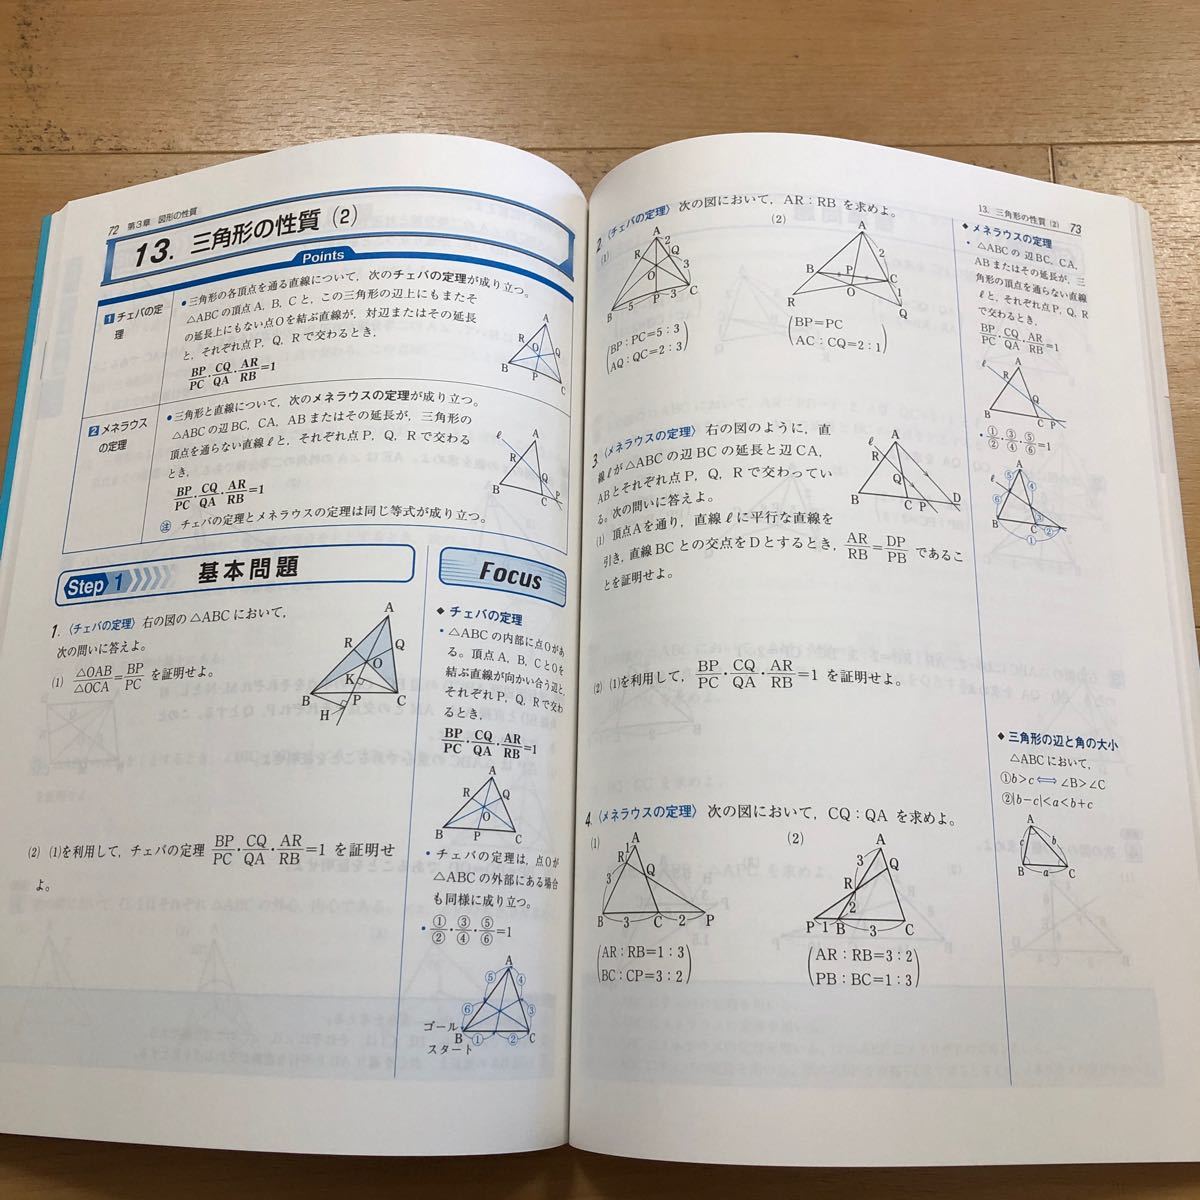 72 第3章 図形の性質
13. 三角形の性質 (2)
Points
1 チェバの定
理
• 三角形の各頂点を通る直線について，次のチェバの定理が成り立つ。
△ABCの頂点A，B，Cと，この三角形の辺上にもまたそ
の延長上にもない点Oを結ぶ直線が，対辺またはその延長
と，それぞれ点P，Q，Rで交わるとき，
BP/PC・CQ/QA・AR/RB=1
A
R O Q
B P C
2 メネラウス
の定理
• 三角形と直線について，次のメネラウスの定理が成り立つ。
△ABCの辺BC，CA，ABまたはその延長が，三角形の
頂点を通らない直線ℓと，それぞれ点P，Q，Rで交わる
とき，
BP/PC・CQ/QA・AR/RB=1
注 チェバの定理とメネラウスの定理は同じ等式が成り立つ。
ℓ A
R Q
B C P
Step 1 基本問題
1. 〈チェバの定理〉 右の図の△ABCにおいて，
次の問いに答えよ。
(1) △OAB/△OCA=BP/PC を証明せよ。
A
R Q
O
K
B P C
H
(2) (1)を利用して，チェバの定理 BP/PC・CQ/QA・AR/RB=1 を証明せ
よ。
Focus
◆ チェバの定理
• △ABCの内部に点Oがあ
る。頂点A，B，CとOを
結ぶ直線が向かい合う辺と，
それぞれP，Q，Rで交わ
るとき，
BP/PC・CQ/QA・AR/RB=1
A
R Q
O
B P C
• チェバの定理は，点Oが
△ABCの外部にある場合
も同様に成り立つ。
• ①/②・③/④・⑤/⑥=1
A
⑤ ④
⑥ ③
ゴール B ① ② C
スタート
13. 三角形の性質 (2) 73
2. 〈チェバの定理〉 次の図において，AR：RBを求めよ。
(1)
A
2
R Q
O 3
B 5 P 3 C
(BP：PC=5：3
AQ：QC=2：3)
(2)
A
2
B P C
R O 1
Q
(BP=PC
AC：CQ=2：1)
3. 〈メネラウスの定理〉 右の図のように，直
線ℓが△ABCの辺BCの延長と辺CA，
ABとそれぞれ点P，Q，Rで交わってい
る。次の問いに答えよ。
(1) 頂点Aを通り，直線ℓに平行な直線を
引き，直線BCとの交点をDとするとき，AR/RB=DP/PB であるこ
とを証明せよ。
A
ℓ
R
Q
B C P D
(2) (1)を利用して，BP/PC・CQ/QA・AR/RB=1 を証明せよ。
4. 〈メネラウスの定理〉 次の図において，CQ：QAを求めよ。
(1)
A
1
R Q
3
B 3 C 2 P
(AR：RB=1：3
BC：CP=3：2)
(2)
A
3 Q
R
2
P 1 B 3 C
(AR：RB=3：2
PB：BC=1：3)
◆ メネラウスの定理
△ABCの辺BC，CA，
ABまたはその延長が，三
角形の頂点を通らない直線
ℓと，それぞれ点P，Q，R
で交わるとき，
BP/PC・CQ/QA・AR/RB=1
ℓ A
R
Q
B C P
• ①/②・③/④・⑤/⑥=1
A
⑤ ④
ℓ
⑥
③
B C ②
①
◆ 三角形の辺と角の大小
△ABCにおいて，
①b>c⟺∠B>∠C
②|b−c|<a<b+c
A
c b
B a C